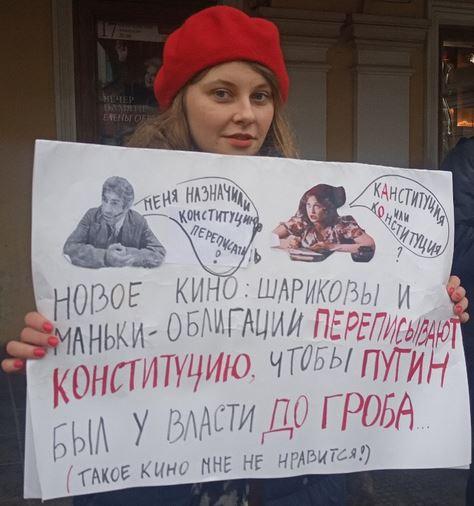 17
ВЕЧЕР
ПАМЯТИ
МЕНЯ НАЗНАЧИЛИ
КОНСТИТУЦИЮ
ПЕРЕПИСАТЬ
?
КАНСТИТУЦИЯ
ИЛИ
КОНСТИТУЦИЯ
?
НОВОЕ КИНО: ШАРИКОВЫ И
МАНЬКИ-ОБЛИГАЦИИ ПЕРЕПИСЫВАЮТ
КОНСТИТУЦИЮ, ЧТОБЫ ПУТИН
БЫЛ У ВЛАСТИ ДО ГРОБА...
(ТАКОЕ КИНО МНЕ НЕ НРАВИТСЯ?)